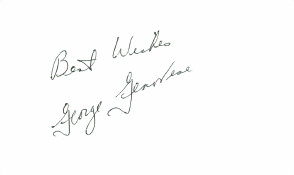 Best Wishes
George Genovese